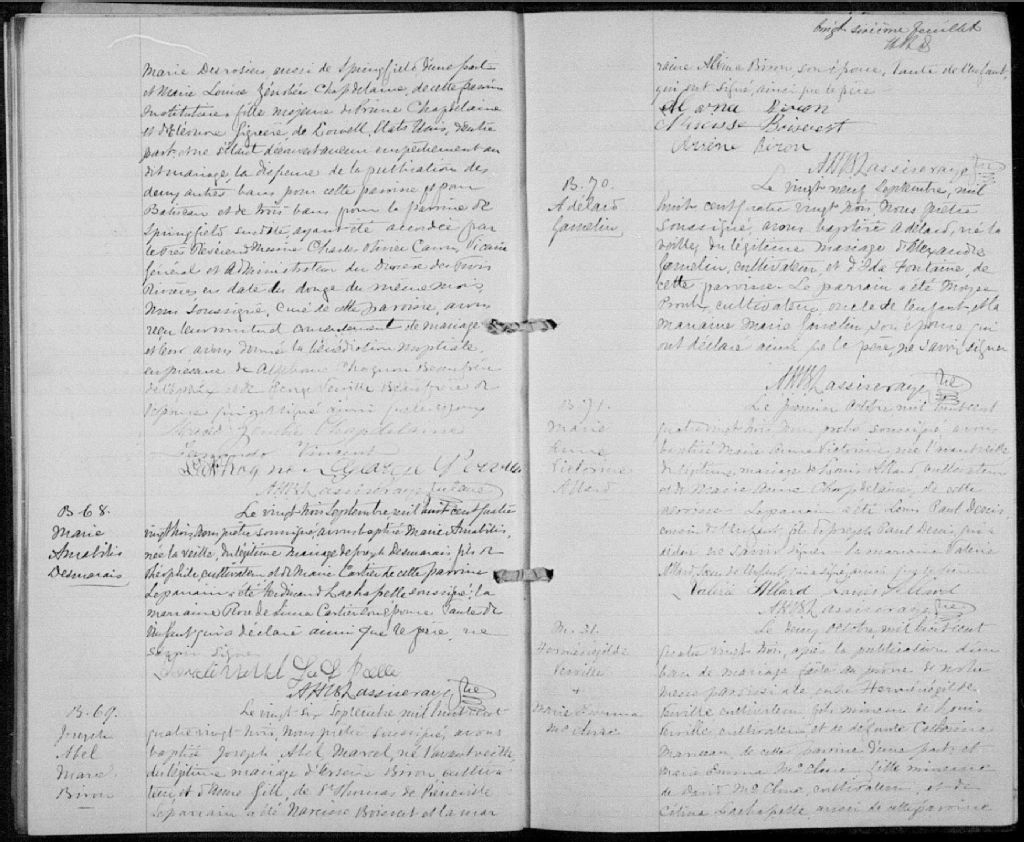 Marie Desrosiers, aussi de Springfield d'une part
et Marie Louise Zenobie Chapdelaine, de cette paroisse
Institutrice, fille majeure de Prime Chapdelaine
et d'Eléonore de Lowell, Etats Unis, d'autre
part, et ne s'étant découvert aucun empêchement au
dit mariage, la dispense de la publication des
deux autres bans pour cette paroisse
et de trois bans pour la paroisse de
Springfield susdite, ayant été accordée par
le Très Révérend Messire Charles Olivier Caron, Vicaire
Général et Administrateur du Diocèse des Trois
Rivières en date du douze du même mois,
Nous soussigné, curé de cette paroisse, avons
reçu leur mutuel consentement de mariage
et leur avons donné la bénédiction nuptiale,
en présence de Chagnon Beaufrère
de l'époux et de Beaufrère de
l'épouse qui ont signé ainsi que les époux
Zenobie Chapdelaine
Vincent
B 68.
Marie
Amabilis
Desmarais
Le vingt trois Septembre mil huit cent quatre
vingt trois, Nous prêtre soussigné, avons baptisé Marie Amabilis,
née la veille, du légitime mariage de Joseph Desmarais fils de
Théophile, cultivateur et de Marie Cartier de cette paroisse
Le parrain a été Ferdinand Lachapelle soussigné, la
marraine Rose de Lima Cartier son épouse, tante de
l'enfant qui a déclaré ainsi que le père, ne
savoir signer
Ferdinand La Chapelle
B. 69.
Joseph
Abel
Marcel
Biron
Le vingt six Septembre mil huit cent
quatre vingt trois, Nous prêtre soussigné, avons
baptisé Joseph Abel Marcel, né l'avant veille,
du légitime mariage d'Arsène Biron, cultiva-
teur, et d' Gill, de St Thomas de Pierreville
Le parrain a été Narcisse Boisvert et la mar
vingt sixième feuillet
raine Alzina Biron, son épouse, tante de l'enfant,
qui ont signé, ainsi que le père
Biron
Narcisse Boisvert
Arsène Biron
B. 70.
Adélard
Gamelin
Le vingt neuf Septembre, mil
huit cent quatre vingt trois, Nous prêtre
soussigné, avons baptisé Adélard, né la
veille, du légitime mariage d'Alexandre
Gamelin, cultivateur, et d'Ida Fontaine, de
cette paroisse. Le parrain a été Moyse
cultivateur, oncle de l'enfant, et la
marraine Marie Gamelin, son épouse qui
ont déclaré ainsi que le père, ne savoir signer
B. 71.
Marie
Anne
Victorine
Allard
Le premier Octobre mil huit cent
quatre vingt trois Nous prêtre soussigné avons
baptisé Marie Anna Victorine née l'avant veille
du légitime mariage de Louis Allard cultivateur
et de Marie Anne Chapdelaine, de cette
paroisse. Le parrain a été Louis Paul Denis
cousin de l'enfant, fils de Joseph Paul Denis, qui a
déclaré ne savoir signer. La marraine Valérie
Allard, de l'enfant, qui a signé, ainsi que le père
Valérie Allard Louis Allard
M. 31.
Herménégilde
Verville
&
Marie Emma
McClure
Octobre, mil huit cent
quatre vingt trois, après la publication d'un
ban de mariage faite au prône de notre
messe paroissiale entre Herménégilde
Verville cultivateur, fils mineur de Louis
Verville cultivateur, et de défunte Catherine
de cette paroisse d'une part, et
Marie Emma McClure fille mineure
de David McClure, cultivateur, et de
Célina Lachapelle, aussi de cette paroisse